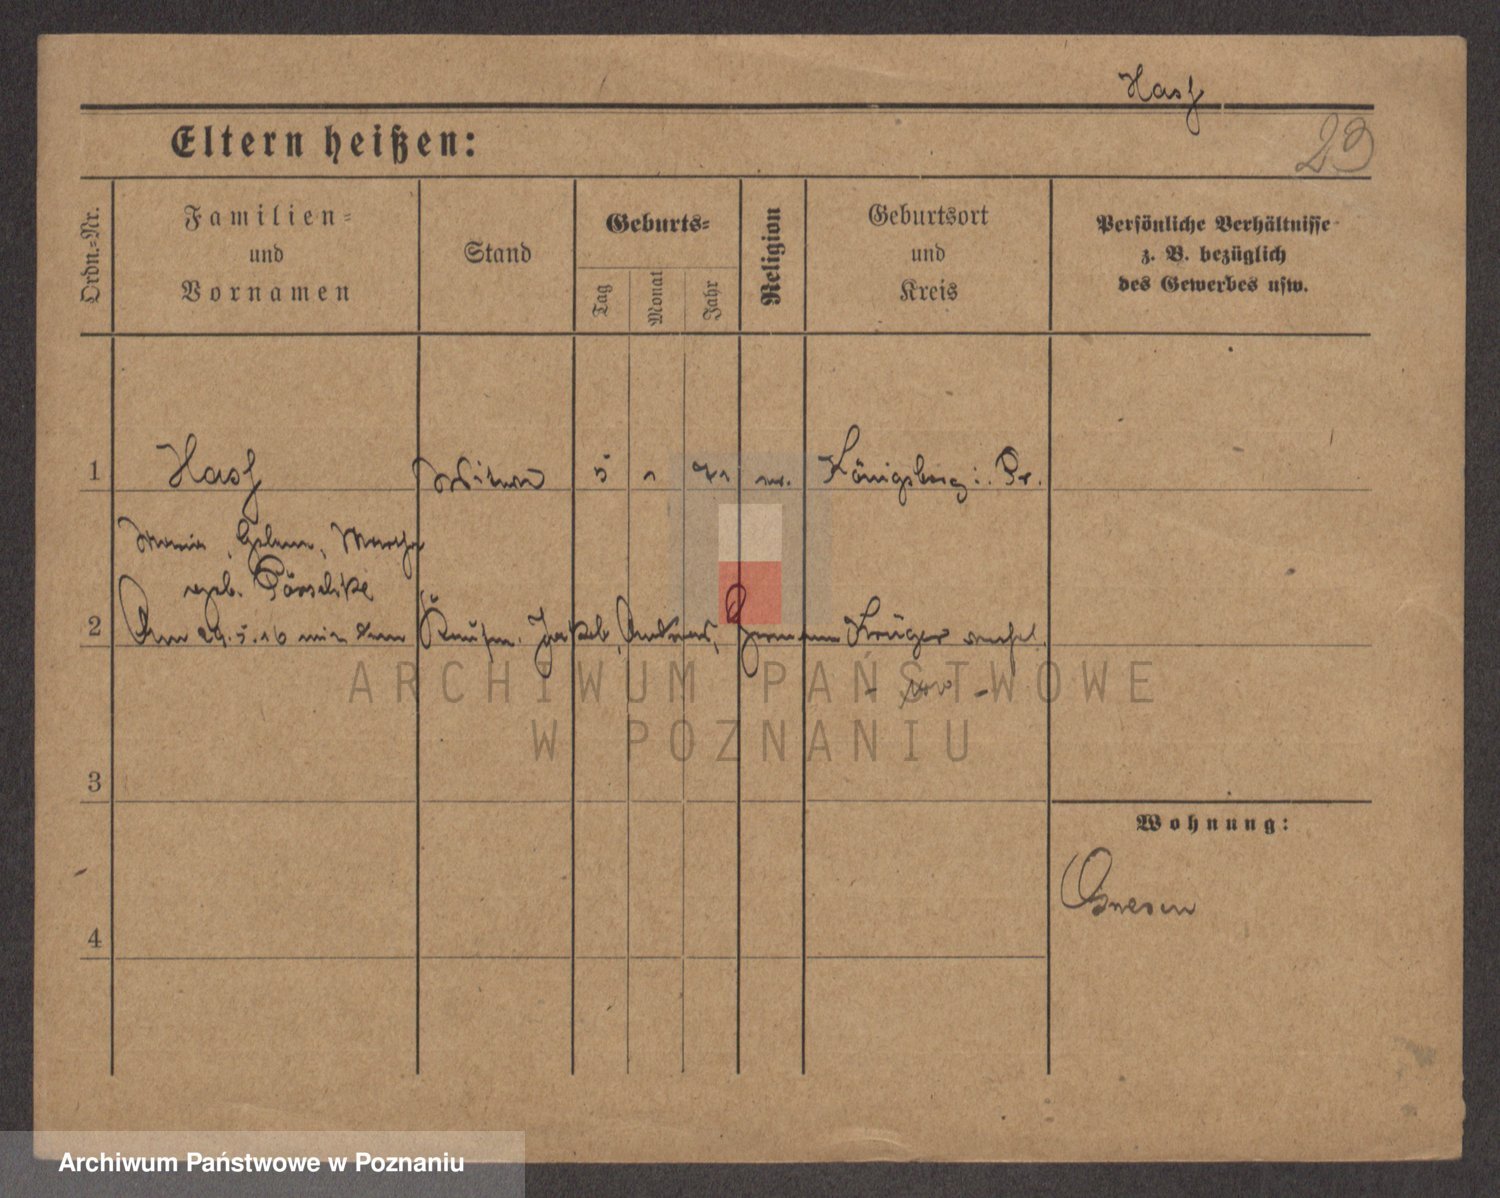 Hass
23
Eltern heißen:
Ordn.=Nr.
Familien=
und
Vornamen
Stand
Geburts=
Tag
Monat
Jahr
Religion
Geburtsort
und
Kreis
Persönliche Verhältnisse
z. B. bezüglich
des Gewerbes usw.
1 Hass Witwe 5 1 71 ev. Königsberg i. Pr.
Maria, Helene, Martha
geb. Pörschke
2 Am 29.5.16 mit dem Kaufm. Jakob, Andreas, Hermann Krüger verehel.
3
Wohnung:
Gnesen
4
ARCHIWUM PAŃSTWOWE
W POZNANIU
Archiwum Państwowe w Poznaniu